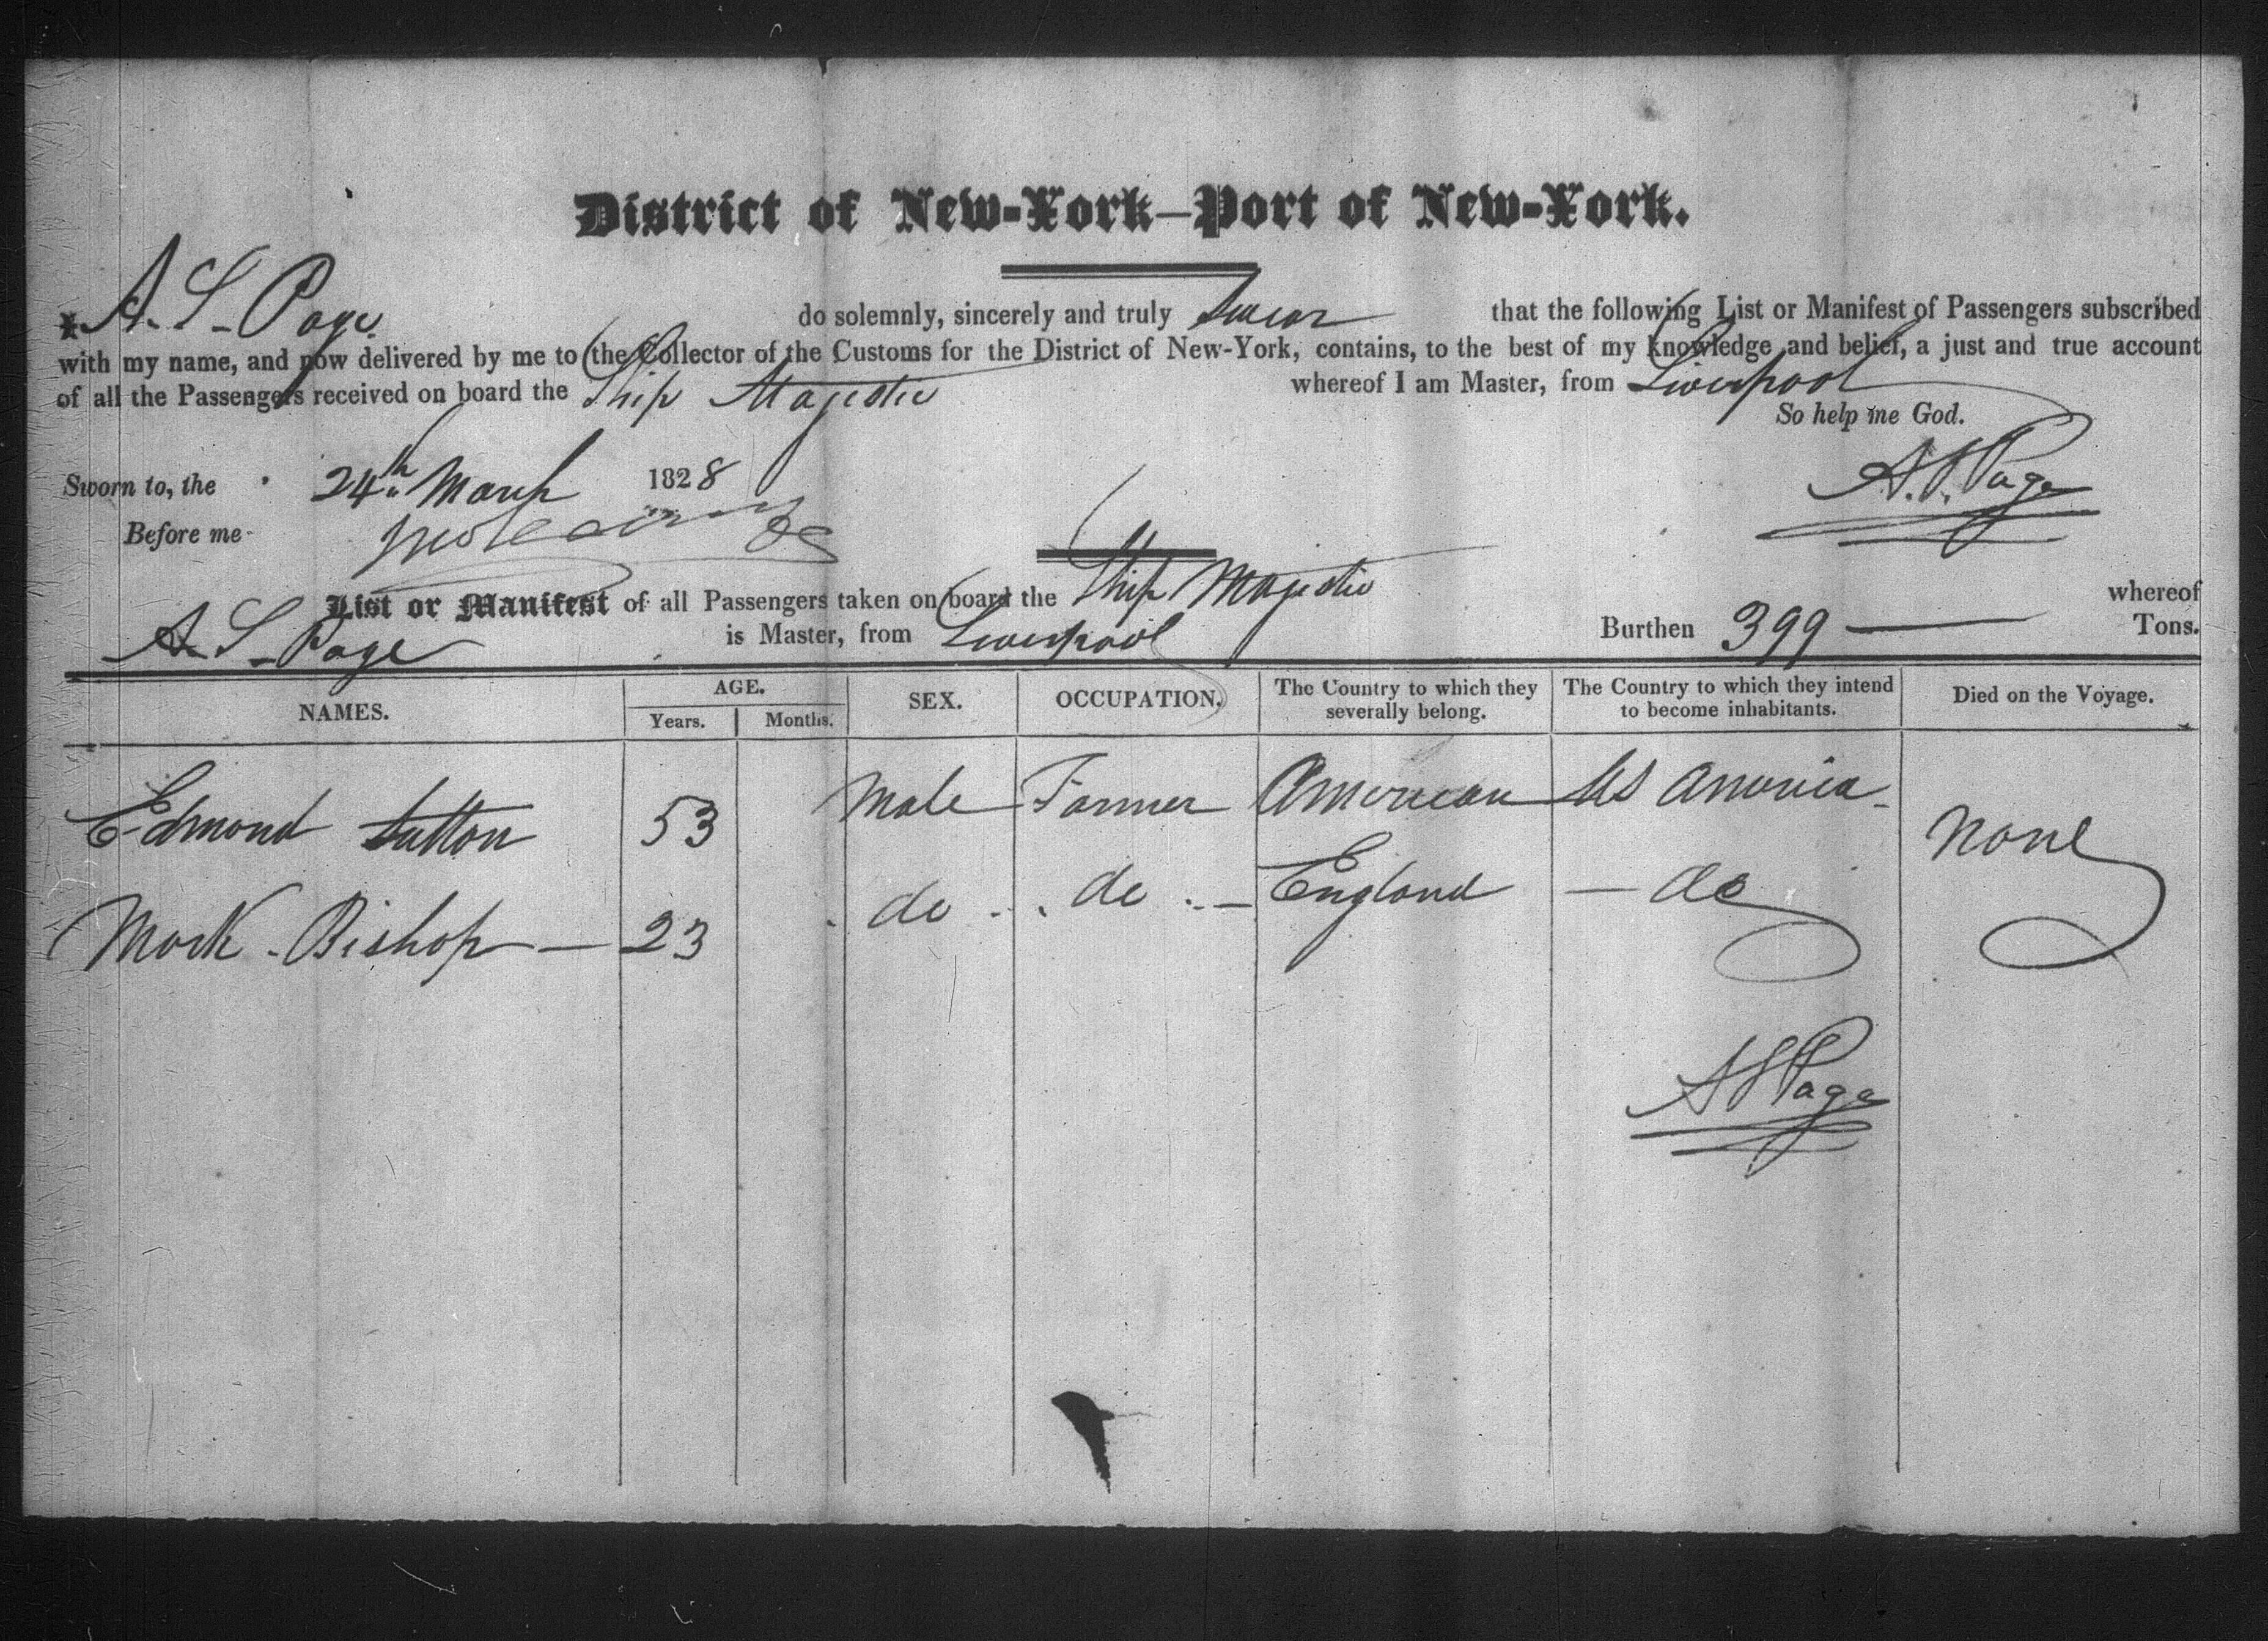 District of New-York—Port of New-York.
I A. S. Page do solemnly, sincerely and truly swear that the following List or Manifest of Passengers subscribed
with my name, and now delivered by me to the Collector of the Customs for the District of New-York, contains, to the best of my knowledge and belief, a just and true account
of all the Passengers received on board the Ship Majestic whereof I am Master, from Liverpool
So help me God.
Sworn to, the 24th March 1828 A. S. Page
Before me
List or Manifest of all Passengers taken on board the Ship Majestic whereof
A. S. Page is Master, from Liverpool Burthen 399 — Tons.
NAMES. AGE. Years. Months. SEX. OCCUPATION. The Country to which they severally belong. The Country to which they intend to become inhabitants. Died on the Voyage.
Edmond Sutton 53 Male Farmer American US America None
Mark Bishop — 23 do do England — do
A S Page